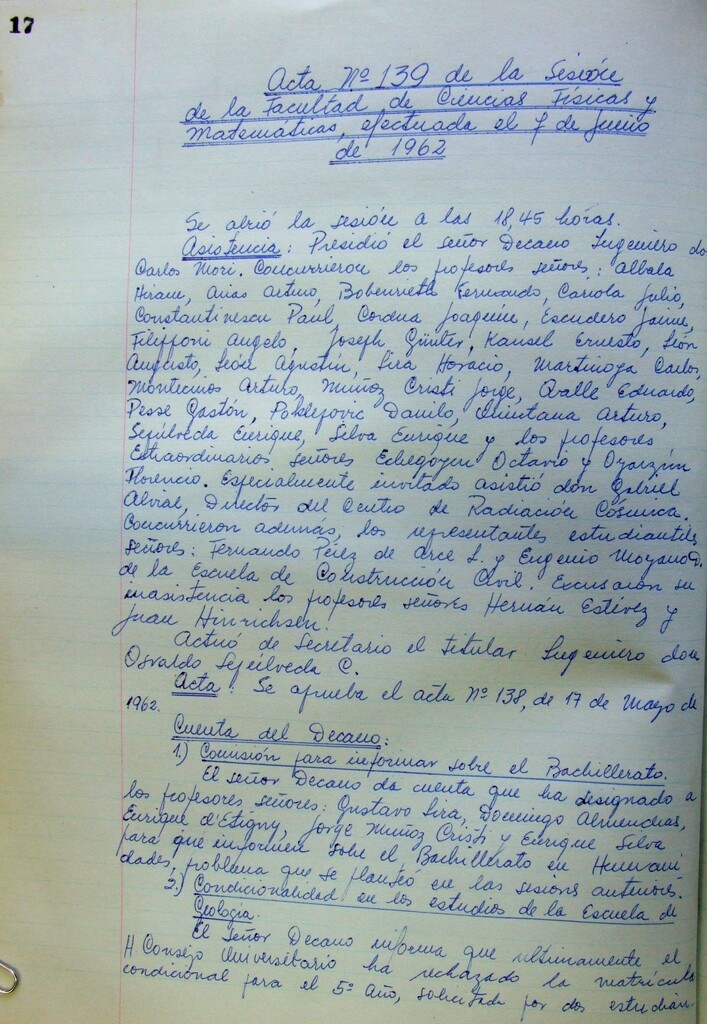 17
Acta Nº 139 de la Sesión
de la Facultad de Ciencias Físicas y
Matemáticas, efectuada el 7 de Junio
de 1962
Se abrió la sesión a las 18,45 horas.
Asistencia: Presidió el señor Decano Ingeniero don
Carlos Mori. Concurrieron los profesores señores: Albala
Hiram, Arias Arturo, Bobenrieth Fernando, Cariola Julio,
Constantinescu Paul, Cordua Joaquín, Escudero Jaime,
Filipponi Angelo, Joseph Günter, Kausel Ernesto, León
Augusto, León Agustín, Lira Horacio, Martinoya Carlos,
Montecinos Arturo, Muñoz Cristi Jorge, Ovalle Eduardo,
Pesse Gastón, Poklepovic Danilo, Quintana Arturo,
Sepúlveda Enrique, Silva Enrique y los profesores
Extraordinarios señores Echegoyen Octavio y Oyarzún
Florencio. Especialmente invitado asistió don Gabriel
Alvial, Director del Centro de Radiación Cósmica.
Concurrieron además, los representantes estudiantiles
señores: Fernando Pérez de Arce L. y Eugenio Moyano D.
de la Escuela de Construcción Civil. Excusaron su
inasistencia los profesores señores Hernán Estévez y
Juan Hinrichsen.
Actuó de Secretario el titular Ingeniero don
Osvaldo Sepúlveda C.
Acta: Se aprueba el acta Nº 138, de 17 de Mayo de
1962.
Cuenta del Decano:
1.) Comisión para informar sobre el Bachillerato.
El señor Decano da cuenta que ha designado a
los profesores señores: Gustavo Lira, Domingo Almendras,
Enrique d'Etigny, Jorge Muñoz Cristi y Enrique Silva
para que informen sobre el Bachillerato en Humani
dades, problema que se planteó en las sesiones anteriores.
2.) Condicionalidad en los estudios de la Escuela de
Geología.
El señor Decano informa que ultimamente el
H. Consejo Universitario ha rechazado la matrícula
condicional para el 5º Año, solicitada por dos estudian-